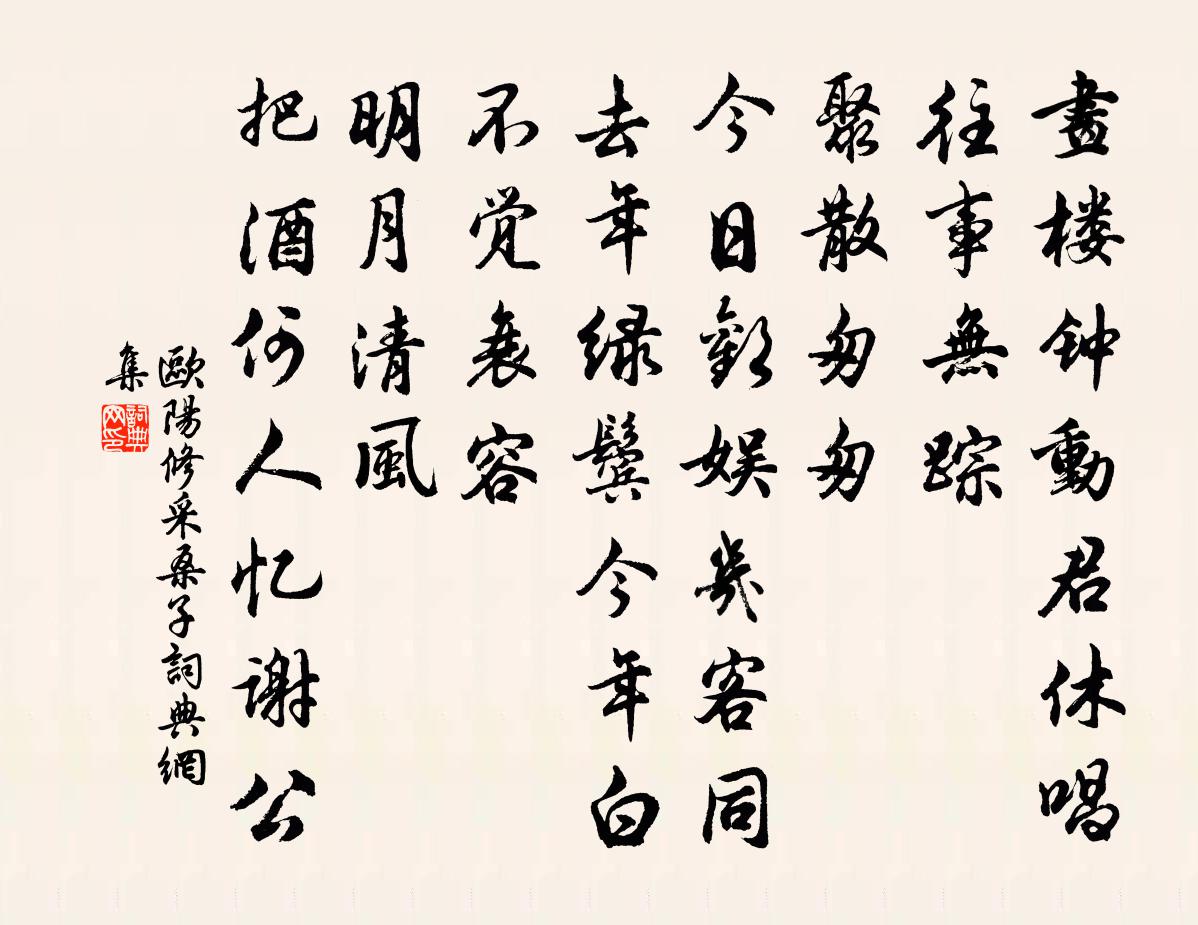 畫楼钟動君休唱
往事無踪
聚散匆匆
今日歡娛幾客同
去年绿鬓今年白
不觉衰容
明月清風
把酒何人忆谢公
歐陽修采桑子詞典網
集
詞典網印